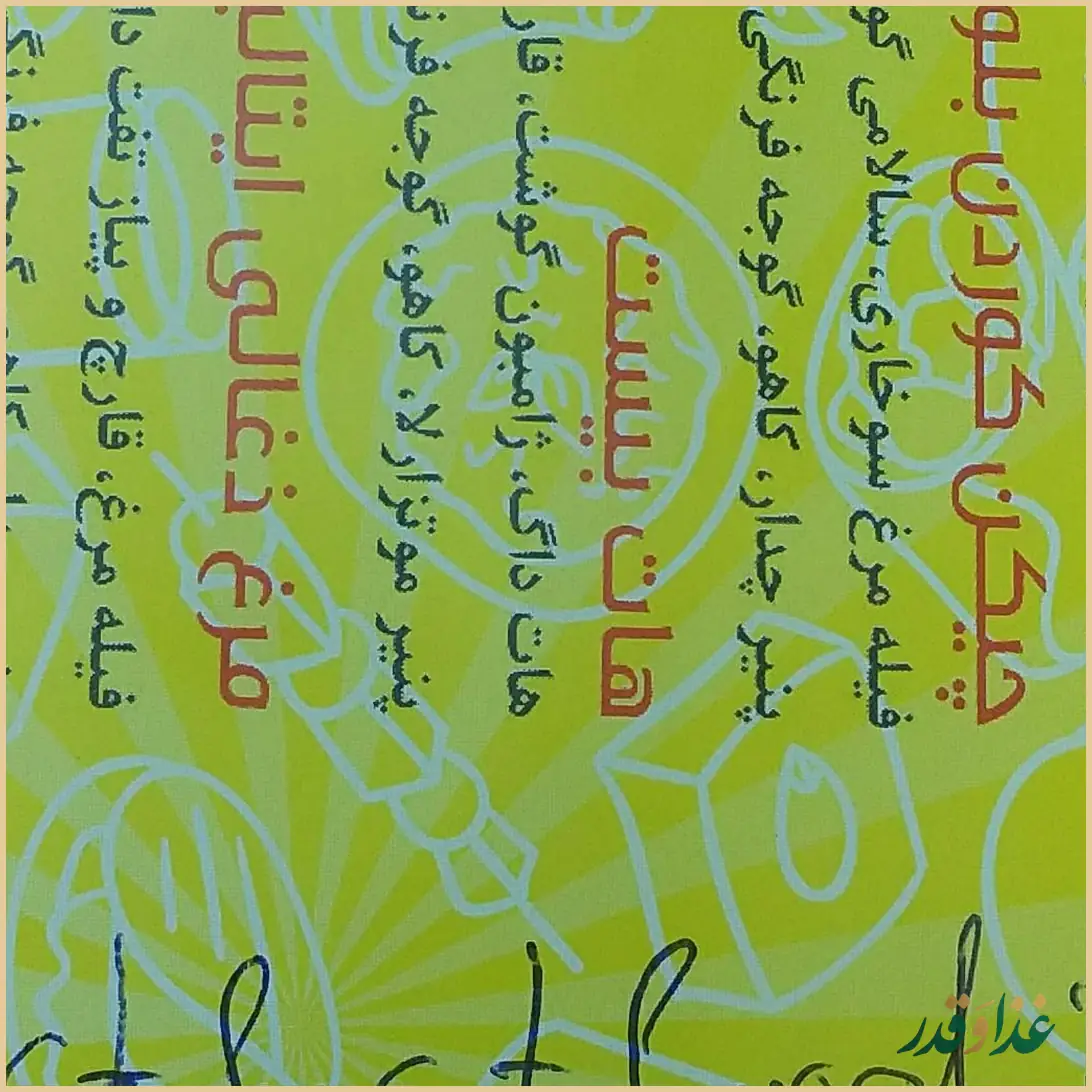 چیکن کوردن بلو
فیله مرغ سوخاری، سالامی گو
پنیر چدار، کاهو، گوجه فرنگی
هات بیست
هات داگ، ژامبون گوشت، قار
پنیر موتزارلا، کاهو، گوجه فرن
مرغ ذغالی ایتالیـ
فیله مرغ، قارچ و پیاز تفت دا
غذا و قدر